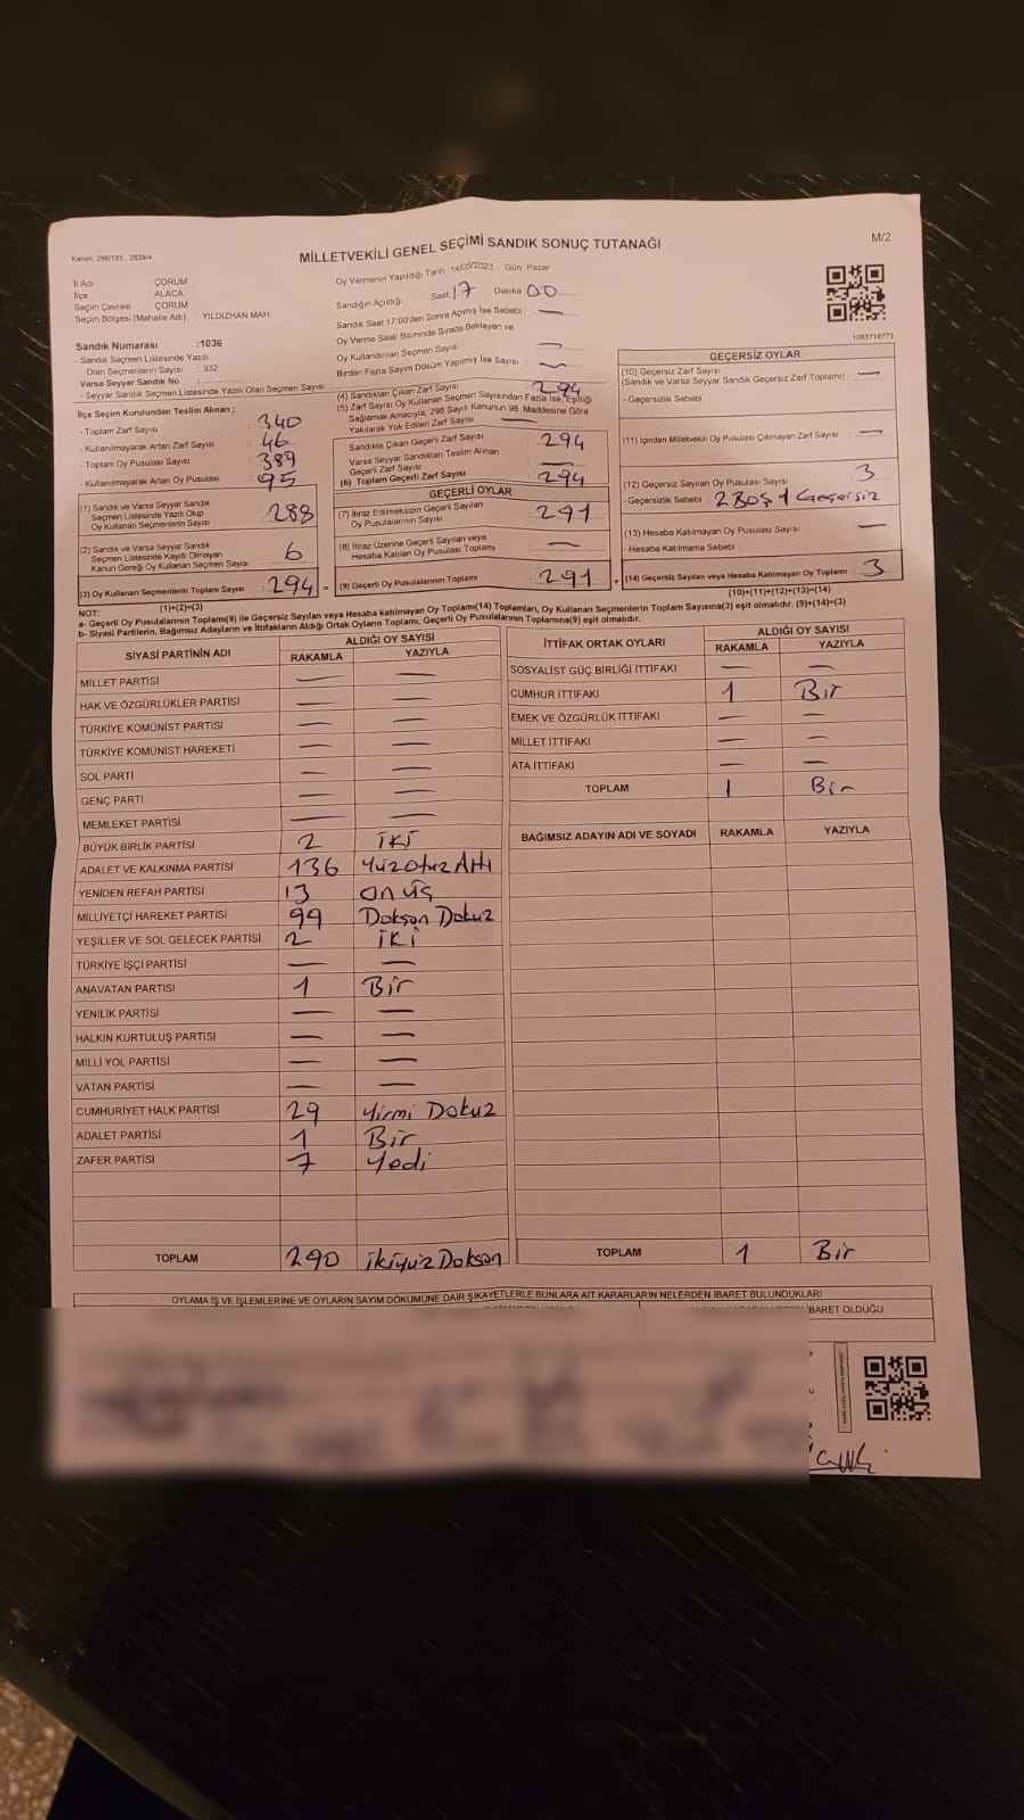 MİLLETVEKİLİ GENEL SEÇİMİ SANDIK SONUÇ TUTANAĞI
M/2
İl Adı ÇORUM
İlçe ALACA
Seçim Çevresi ÇORUM
Seçim Bölgesi (Mahalle Adı) YILDIZHAN MAH.
Oy Vermenin Yapıldığı Tarih: 14/05/2023 Gün: Pazar
Sandığın Açıldığı: Saat 17 Dakika 00
Sandık Saat 17:00'den Sonra Açılmış İse Sebebi: —
Oy Verme Saati Bitiminde Sırada Bekleyen ve
Oy Kullandırılan Seçmen Sayısı —
Birden Fazla Sayım Döküm Yapılmış İse Sayısı —
Sandık Numarası :1036
- Sandık Seçmen Listesinde Yazılı
Olan Seçmenlerin Sayısı : 332
Varsa Seyyar Sandık No :
- Seyyar Sandık Seçmen Listesinde Yazılı Olan Seçmen Sayısı:
İlçe Seçim Kurulundan Teslim Alınan ;
- Toplam Zarf Sayısı 340
- Kullanılmayarak Artan Zarf Sayısı 46
- Toplam Oy Pusulası Sayısı 389
- Kullanılmayarak Artan Oy Pusulası 95
(1) Sandık ve Varsa Seyyar Sandık
Seçmen Listesinde Yazılı Olup
Oy Kullanan Seçmenlerin Sayısı 288
(2) Sandık ve Varsa Seyyar Sandık
Seçmen Listesinde Kayıtlı Olmayan
Kanun Gereği Oy Kullanan Seçmen Sayısı 6
(3) Oy Kullanan Seçmenlerin Toplam Sayısı 294 =
(1)+(2)=(3)
(4) Sandıktan Çıkan Zarf Sayısı 294
(5) Zarf Sayısı Oy Kullanan Seçmen Sayısından Fazla İse, Eşitliği
Sağlamak Amacıyla, 298 Sayılı Kanunun 98. Maddesine Göre
Yakılarak Yok Edilen Zarf Sayısı —
Sandıkta Çıkan Geçerli Zarf Sayısı 294
Varsa Seyyar Sandıktan Teslim Alınan
Geçerli Zarf Sayısı —
(6) Toplam Geçerli Zarf Sayısı 294
GEÇERLİ OYLAR
(7) İtiraz Edilmeksizin Geçerli Sayılan
Oy Pusulalarının Sayısı 291
(8) İtiraz Üzerine Geçerli Sayılan veya
Hesaba Katılan Oy Pusulası Toplamı —
(9) Geçerli Oy Pusulalarının Toplamı 291 +
GEÇERSİZ OYLAR
(10) Geçersiz Zarf Sayısı
(Sandık ve Varsa Seyyar Sandık Geçersiz Zarf Toplamı) —
- Geçersizlik Sebebi
(11) İçinden Milletvekili Oy Pusulası Çıkmayan Zarf Sayısı —
(12) Geçersiz Sayılan Oy Pusulası Sayısı 3
- Geçersizlik Sebebi 2 Boş 1 Geçersiz
(13) Hesaba Katılmayan Oy Pusulası Sayısı —
- Hesaba Katılmama Sebebi
(14) Geçersiz Sayılan veya Hesaba Katılmayan Oy Toplamı 3
(10)+(11)+(12)+(13)=(14)
NOT:
a- Geçerli Oy Pusulalarının Toplamı(9) ile Geçersiz Sayılan veya Hesaba katılmayan Oy Toplamı(14) Toplamları, Oy Kullanan Seçmenlerin Toplam Sayısına(3) eşit olmalıdır. (9)+(14)=(3)
b- Siyasi Partilerin, Bağımsız Adayların ve İttifakların Aldığı Ortak Oyların Toplamı, Geçerli Oy Pusulalarının Toplamına(9) eşit olmalıdır.
SİYASİ PARTİNİN ADI ALDIĞI OY SAYISI
RAKAMLA YAZIYLA
MİLLET PARTİSİ — —
HAK VE ÖZGÜRLÜKLER PARTİSİ — —
TÜRKİYE KOMÜNİST PARTİSİ — —
TÜRKİYE KOMÜNİST HAREKETİ — —
SOL PARTİ — —
GENÇ PARTİ — —
MEMLEKET PARTİSİ — —
BÜYÜK BİRLİK PARTİSİ 2 iki
ADALET VE KALKINMA PARTİSİ 136 Yüzotuz Altı
YENİDEN REFAH PARTİSİ 13 onüş
MİLLİYETÇİ HAREKET PARTİSİ 99 Doksan Dokuz
YEŞİLLER VE SOL GELECEK PARTİSİ 2 iki
TÜRKİYE İŞÇİ PARTİSİ — —
ANAVATAN PARTİSİ 1 Bir
YENİLİK PARTİSİ — —
HALKIN KURTULUŞ PARTİSİ — —
MİLLİ YOL PARTİSİ — —
VATAN PARTİSİ — —
CUMHURİYET HALK PARTİSİ 29 Yirmi Dokuz
ADALET PARTİSİ 1 Bir
ZAFER PARTİSİ 7 Yedi
TOPLAM 290 ikiyüz Doksan
İTTİFAK ORTAK OYLARI ALDIĞI OY SAYISI
RAKAMLA YAZIYLA
SOSYALİST GÜÇ BİRLİĞİ İTTİFAKI — —
CUMHUR İTTİFAKI 1 Bir
EMEK VE ÖZGÜRLÜK İTTİFAKI — —
MİLLET İTTİFAKI — —
ATA İTTİFAKI — —
TOPLAM 1 Bir
BAĞIMSIZ ADAYIN ADI VE SOYADI RAKAMLA YAZIYLA
TOPLAM 1 Bir
OYLAMA İŞ VE İŞLEMLERİNE VE OYLARIN SAYIM DÖKÜMÜNE DAİR ŞİKAYETLERLE BUNLARA AİT KARARLARIN NELERDEN İBARET BULUNDUKLARI
İBARET OLDUĞU